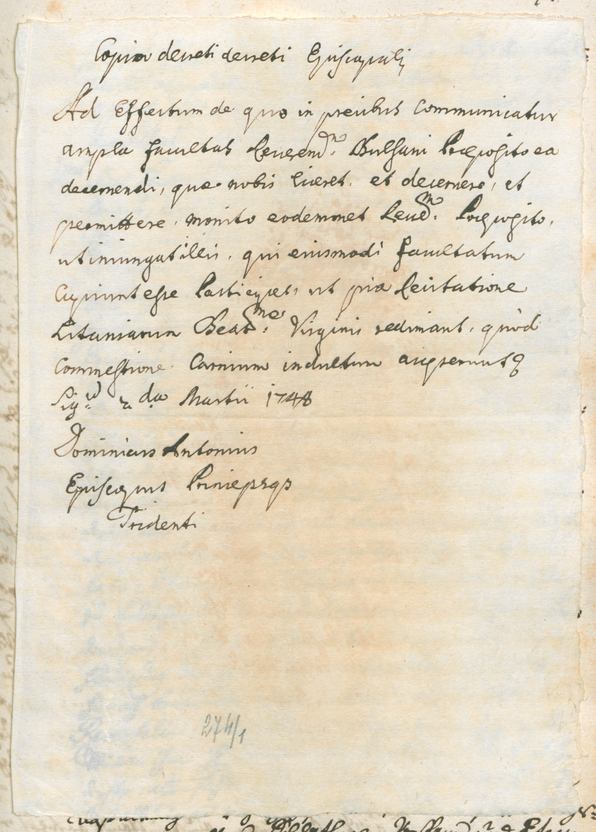 Copia decreti decreti Episcopalis
Ad Effectum de quo in precibus Communicatur
ampla facultas Reverendmo: Bulsani Præposito ea
decernendi, quæ nobis liceret, et decernere, et
permittere, monito eodemmet Revdmo: Præposito,
ut iniungat illis, qui eiusmodi facultatum
Cupiunt esse Participes, ut pia Recitatione
Litaniarum Beatmæ: Virginis redimant, quod
Commestione Carnium indultum
da Martii 1748
Dominicus Antonius
Episcopus Princepsqs
Tridenti
274/1